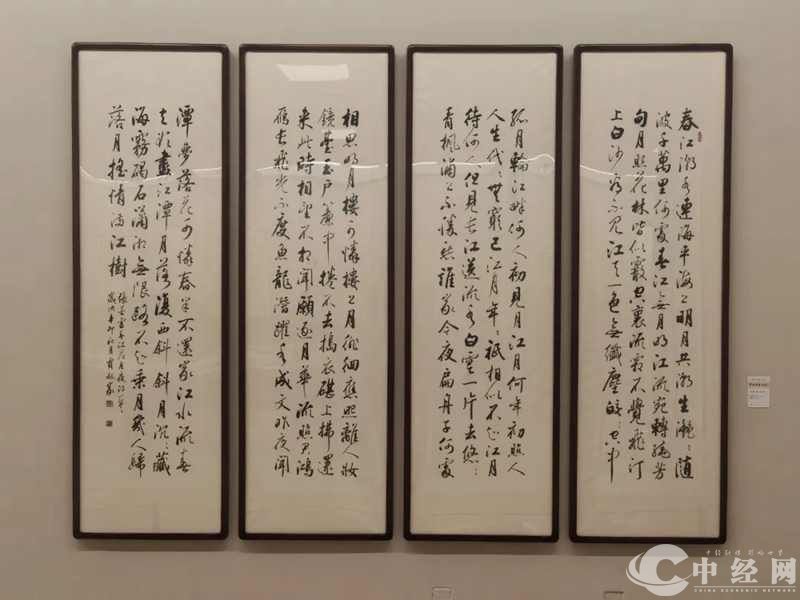 春江潮水連海平海上明月共潮生灩灩隨
波千萬里何處春江無月明江流宛轉繞芳
甸月照花林皆似霰空裏流霜不覺飛汀
上白沙看不見江天一色無纖塵皎皎空中
孤月輪江畔何人初見月江月何年初照人
人生代代無窮已江月年年祇相似不知江月
待何人但見長江送流水白雲一片去悠悠
青楓浦上不勝愁誰家今夜扁舟子何處
相思明月樓可憐樓上月徘徊應照離人妝
鏡臺玉戶簾中捲不去搗衣砧上拂還
來此時相望不相聞願逐月華流照君鴻
雁長飛光不度魚龍潛躍水成文昨夜閒
潭夢落花可憐春半不還家江水流春
去欲盡江潭月落復西斜斜月沉沉藏
海霧碣石瀟湘無限路不知乘月幾人歸
落月搖情滿江樹
張若虛春江花月夜詩一首
歲次辛卯秋月
中经网
CHINA ECONOMIC NETWORK